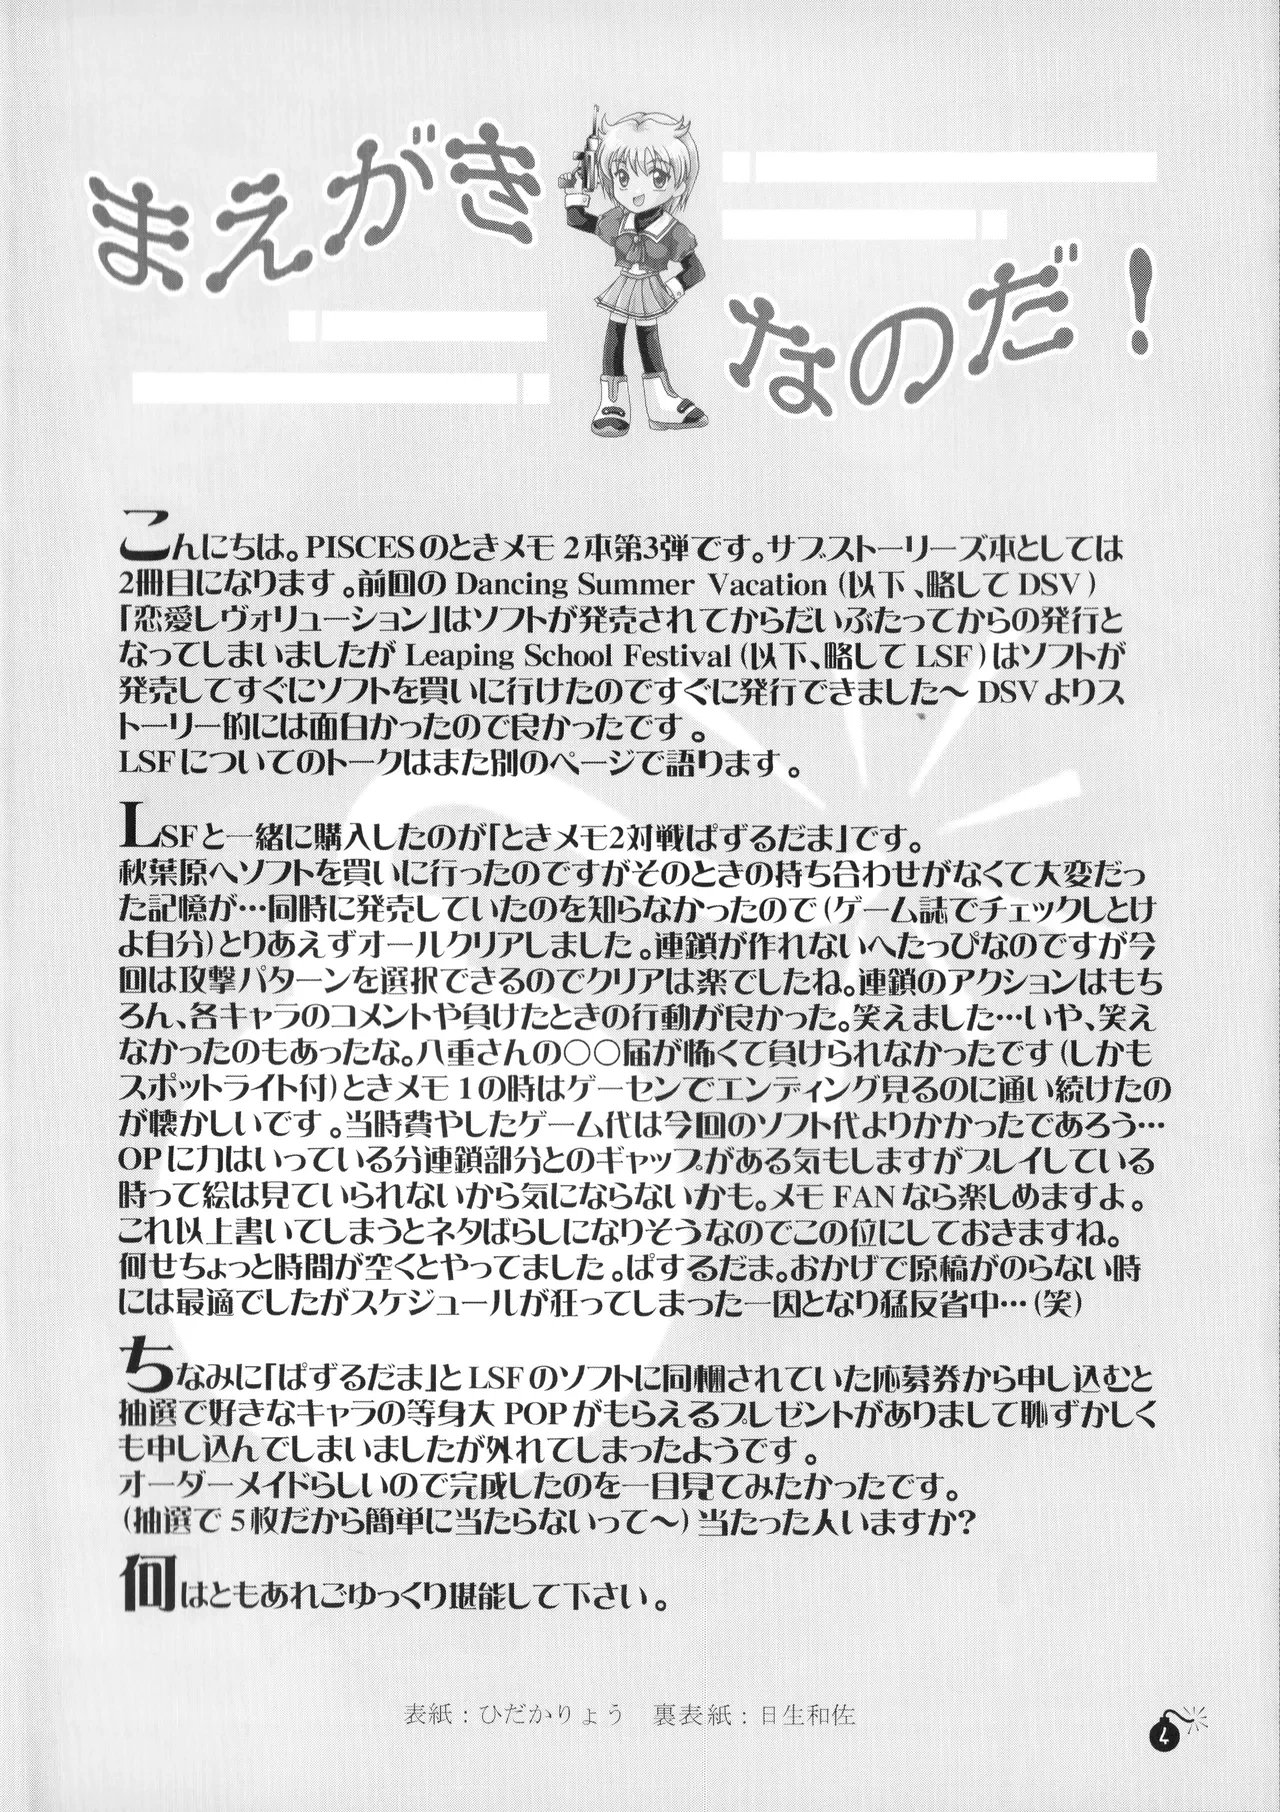 まえがき
なのだ!
こんにちは。PISCESのときメモ2本第3弾です。サブストーリーズ本としては
2冊目になります。前回のDancing Summer Vacation(以下、略してDSV)
「恋愛レヴォリューション」はソフトが発売されてからだいぶたってからの発行と
なってしまいましたがLeaping School Festival(以下、略してLSF)はソフトが
発売してすぐにソフトを買いに行けたのですぐに発行できました〜DSVよりス
トーリー的には面白かったので良かったです。
LSFについてのトークはまた別のページで語ります。
LSFと一緒に購入したのが「ときメモ2対戦ぱずるだま」です。
秋葉原へソフトを買いに行ったのですがそのときの持ち合わせがなくて大変だっ
た記憶が…同時に発売していたのを知らなかったので(ゲーム誌でチェックしとけ
よ自分)とりあえずオールクリアしました。連鎖が作れないへたっぴなのですが今
回は攻撃パターンを選択できるのでクリアは楽でしたね。連鎖のアクションはもち
ろん、各キャラのコメントや負けたときの行動が良かった。笑えました…いや、笑え
なかったのもあったな。八重さんの○○届が怖くて負けられなかったです(しかも
スポットライト付)ときメモ1の時はゲーセンでエンディング見るのに通い続けたの
が懐かしいです。当時費やしたゲーム代は今回のソフト代よりかかったであろう…
OPに力はいっている分連鎖部分とのギャップがある気もしますがプレイしている
時って絵は見ていられないから気にならないかも。メモFANなら楽しめますよ。
これ以上書いてしまうとネタばらしになりそうなのでこの位にしておきますね。
何せちょっと時間が空くとやってました。ぱずるだま。おかげで原稿がのらない時
には最適でしたがスケジュールが狂ってしまった一因となり猛反省中…(笑)
ちなみに「ぱずるだま」とLSFのソフトに同梱されていた応募券から申し込むと
抽選で好きなキャラの等身大POPがもらえるプレゼントがありまして恥ずかしく
も申し込んでしまいましたが外れてしまったようです。
オーダーメイドらしいので完成したのを一目見てみたかったです。
(抽選で5枚だから簡単に当たらないって〜)当たった人いますか?
何はともあれごゆっくり堪能して下さい。
表紙:ひだかりょう 裏表紙:日生和佐
4